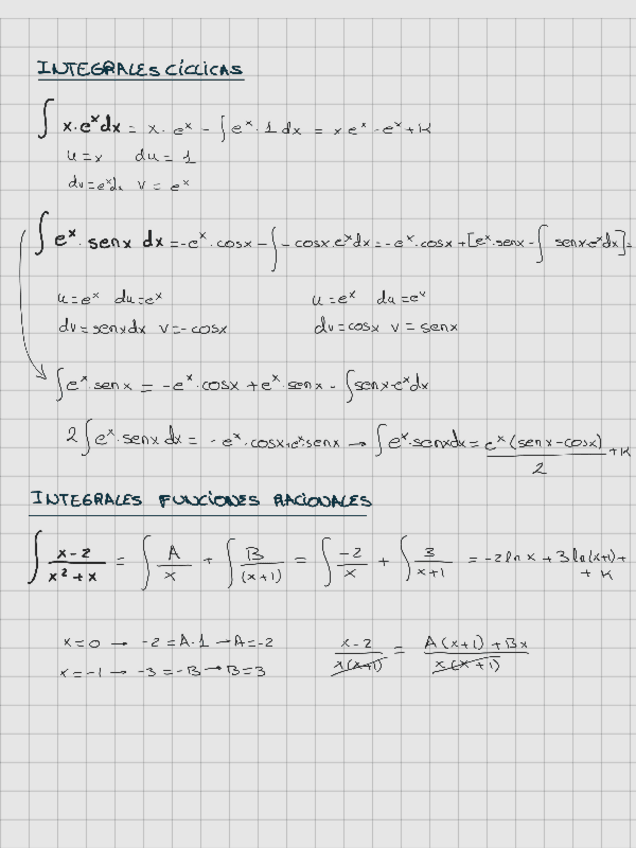 INTEGRALES CÍCLICAS
∫ x·eˣdx = x·eˣ - ∫eˣ·1dx = xeˣ-eˣ+K
u=x du=1
dv=eˣdx v=eˣ
∫ eˣ·senx dx = -eˣ·cosx - ∫ -cosx·eˣdx = -eˣ·cosx + [eˣ·senx - ∫ senx·eˣdx] =
u=eˣ du=eˣ u=eˣ du=eˣ
dv=senxdx v=-cosx dv=cosx v=senx
∫eˣ·senx = -eˣ·cosx + eˣ·senx - ∫senx·eˣdx
2∫eˣ·senxdx = -eˣ·cosx+eˣ·senx → ∫eˣ·senxdx = eˣ(senx-cosx)/2 + K
INTEGRALES FUNCIONES RACIONALES
∫ (x-2)/(x²+x) = ∫ A/x + ∫ B/(x+1) = ∫ -2/x + ∫ 3/(x+1) = -2lnx + 3ln(x+1) +
+ K
x=0 → -2=A·1 → A=-2 (x-2)/(x(x+1)) = (A(x+1)+Bx)/(x(x+1))
x=-1 → -3=-B → B=3